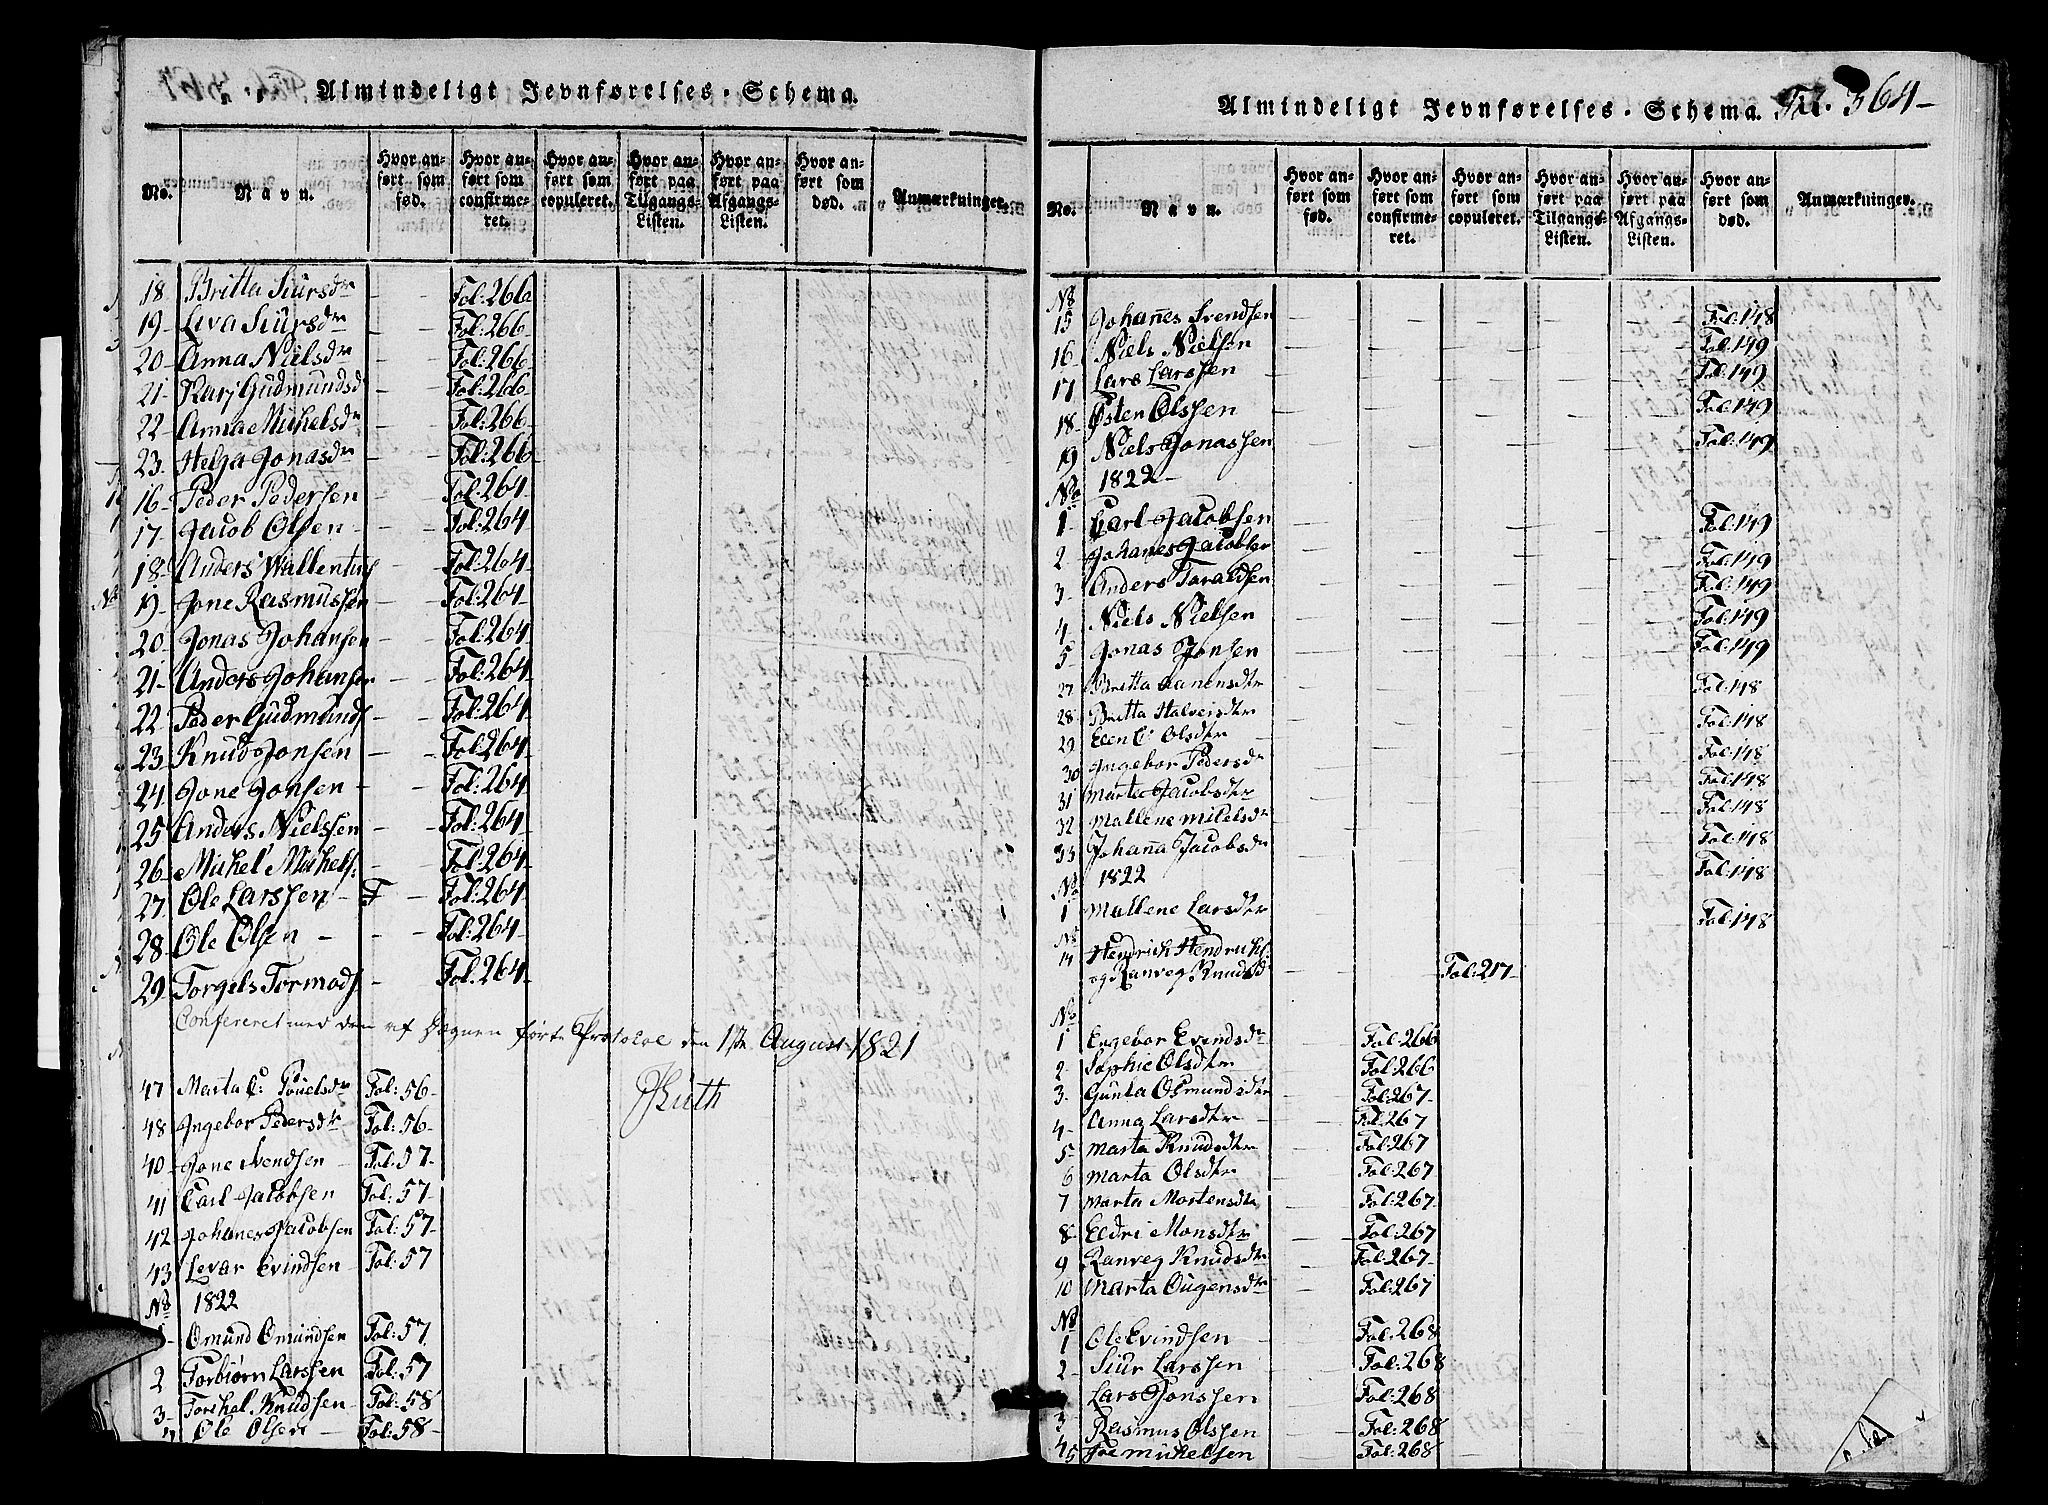 Almindeligt Jevnførelses-Schema.
No. Navn. Hvor anført som fød. Hvor anført som confirmeret. Hvor anført som copuleret. Hvor anført paa Tilgangs-Listen. Hvor anført paa Afgangs-Listen. Hvor anført som død. Anmærkninger.
18 Britta Siursdr - - Fol:266
19- Liva Siursdr - - Fol:266
20- Anna Nielsdr - - Fol:266
21- Karj Gudmundsd - - Fol:266
22- Anna Mikelsdr - - Fol:266
23- Helga Jonasdr - - Fol:266
16- Peder Pedersen - - Fol:264
17- Jacob Olsen - - - Fol:264
18- Anders Wallentins - Fol:264
19- Jone Rasmussen - - Fol:264
20- Jonas Johansen - - Fol:264
21- Anders Johansen - - Fol:264
22- Peder Gudmunds - - Fol:264
23 Knud Jonsen - - Fol:264
24 Jone Jonsen - - Fol:264
25 Anders Nielssen - - Fol:264
26- Mikel Mikels: - Fol:264
27- Ole Larssen - - Fol:264
28- Ole Olsen - - - Fol:264
29- Torgels Tormods - Fol:264
Confereret med den af Sognen førte Protokol den 1ste August 1821
47 Marta C: Pouelsdr Fol:56-
48 Ingebor Pedersdr Fol:56-
40- Jone Svendsen Fol:57-
41 Carl Jacobsen Fol:57-
42- Johanes Jacobsen Fol:57-
43 Levar Evindsen Fol:57
No 1822
Omund Omundsen Fol:57
2 Torbiørn Larssen Fol:57
3- Torkel Knudsen Fol:58
Ole Olsen - Fol:58-
Almindeligt Jevnførelses-Schema. Fol. 364-
No. Navn. Hvor anført som fød. Hvor anført som confirmeret. Hvor anført som copuleret. Hvor anført paa Tilgangs-Listen. Hvor anført paa Afgangs-Listen. Hvor anført som død. Anmærkninger.
No
15 Johanes Svendsen Fol:148
16- Niels Nielsen Fol:149
17 Lars Larssen Fol:149
18- Østen Olssen Fol:149
19 Niels Jonassen Fol:149
No 1822-
1- Carl Jacobsen Fol:149
2- Johanes Jacobsen Fol:149
3- Anders Taraldsen Fol:149
4 Niels Nielsen Fol:149
5- Jonas Jonsen Fol:149
27 Britta Aanensdtr Fol:148
28- Britta Halveisdtr Fol:148
29 Elen C: Olsdtr Fol:148
30 Ingebor Pedersdr Fol:148
31 Marte Jacobsdtr Fol:148
32 Mallene Mikelsdr Fol:148
33 Johanna Jacobsdr Fol:148
No 1822
1 Mallene Larsdtr Fol:148
No
14 Hendrich Hendrichs:
og Ranveg Knudsd: Fol:217-
No
1 Engebor Evindsdr Fol:266
2- Sophie Olsdtr Fol:266
3- Gunla Osmundsdtr Fol:267-
4- Anna Larsdtr Fol:267
5- Marta Knudsdtr Fol:267
6 Marta Olsdtr Fol:267
7 Marta Mortensdtr Fol:267
8- Eldri Monsdtr Fol:267
9 Ranveg Knudsdtr Fol:267-
10 Marta Ougensdtr Fol:267
No
1 Ole Evindsen Fol:268
2- Siur Larssen Fol:268
3- Lars Jonssen Fol:268
4 Rasmus Olssen Fol:268
5 Joe Mikelsen Fol:268